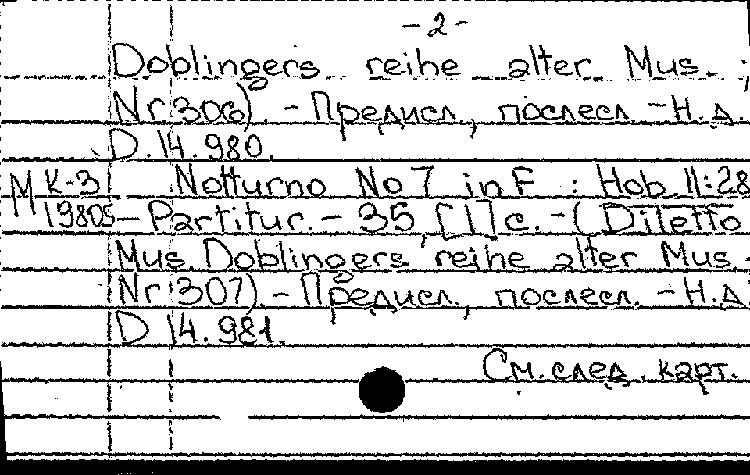 - 2 -
Doblingers reihe alter Mus. ;
Nr 306) - Предисл., послесл. - Н.д.
D. 14. 980.
М К-3 Notturno No 7 in F : Hob. II:28
19805 - Partitur. - 35, [1] с. - (Diletto
Mus. Doblingers reihe alter Mus. ;
Nr 307). - Предисл., послесл. - Н.д.
D 14. 981.
См. след. карт.